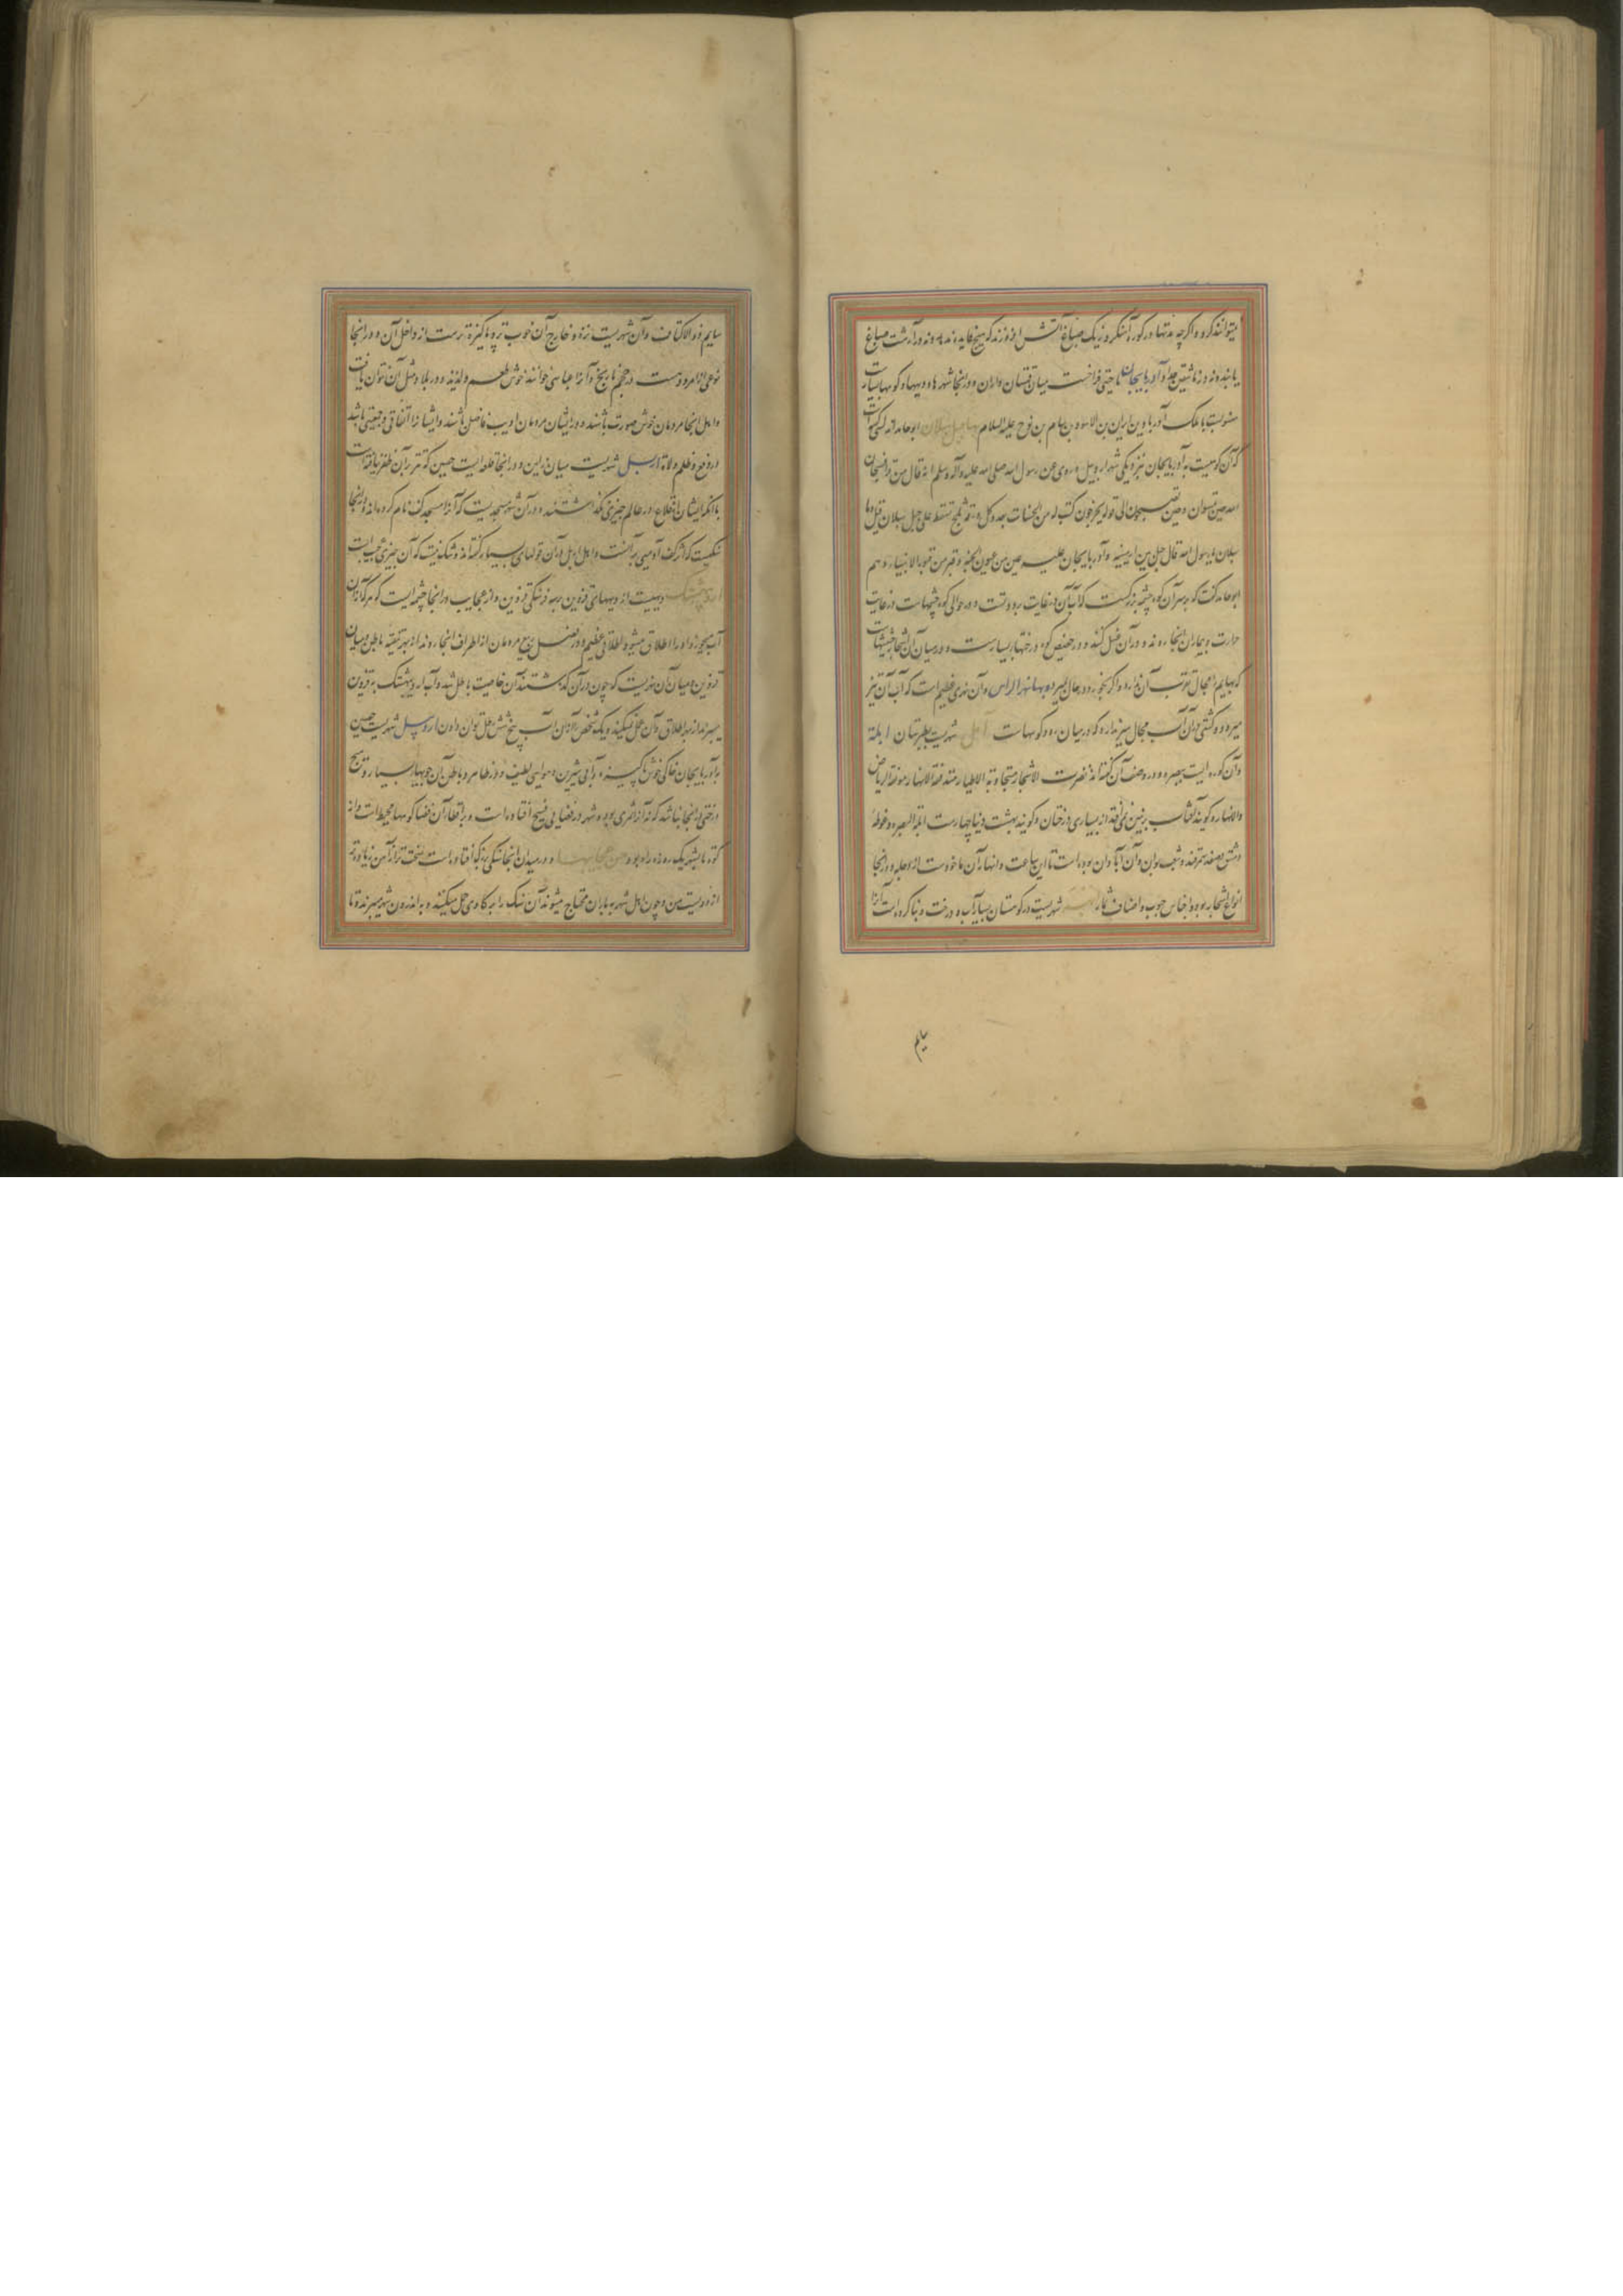 میتوانند کرد و اگر چه مدتها در کوره آهنگر و نزدیک صباغ آتش افروزند که هیچ فایده ندهد و نه در آن رشت صباغ
یابنده و نه در ماشین حداد آذربایجان ناحیتی فراخست میان قهستان و اران و در اینجا شهرها و دیهها و کوهها بسیارست
منسوبست با ملک آذرباد بن ایران بن الاسود بن سام بن نوح علیه السلام بها جبل سبلان ابوحامد اندلسی گفته است
که آن کوهیست به آذربایجان نزدیکی شهر اردبیل و روی عن رسول الله صلی الله علیه و آله وسلم انه قال من قرأ فسبحان
الله حین تمسون و حین تصبحون الی قوله یخرجون کتب له من الحسنات بعدد کل ورقه ثلج تسقط علی جبل سبلان قیل و ما
سبلان یا رسول الله قال جبل بین ارمینیه و آذربایجان علیه عین من عیون الجنه و قبر من قبور الانبیاء و هم
ابوحامد گفت که بر سر آن کوه چشمه بزرگست که آب آن در غایت برودتست و در حوالی کوه چشمهاست در غایت
حرارت و بیماران اینجا روند و در آن غسل کنند و در حضیض کوه درختها بسیارست و در میان آن اشجار حشیشیست
که بهایم را مجال تقرب آن ندارد و اگر بخورد در حال بمیرد و بها نهر الراس و آن نهری عظیم است که آب آن تیز
میرود و کشتی در آن آب مجال سیر ندارد که در میان رود کوههاست آمل شهریست بطبرستان ابلة
و آن کوره ایست ببصره و در وصف آن گفته اند نضرت الاشجار متجاوبة الاطیار متدفقة الانهار مونقة الریاض
والانهار و گویند آفتاب بر زمین نمی افتد از بسیاری درختان و گویند بهشت دنیا چهارست ابلة البصره و غوطه
دمشق و صغد سمرقند و شعب بوان و آن آبادان بوده است تا این ساعت و انهار آن ماخوذست از دجله و در اینجا
انواع اشجار بود و اجناس حبوب و اصناف ثمار شهریست در کوهستان بسیار آب و درخت و بنا کرده است آنرا
سایم
سابم ذوالاکتاف و آن شهریست نزه و خارج آن خوب تر و پاکیزه ترست از داخل آن و در اینجا
نوعی از امرود هست در حجم نارنج و آنرا عباسی خوانند خوش طعم و لذیذ و در بلاد مثل آن نتوان یافت
و اهل اینجا مردمان خوش صورت باشند و در ایشان مردمان ادیب فاضل باشند و ایشانرا اتفاقی و جمعیتی باشد
در دفع ظلم ولاة اربل شهریست میان زابین و در اینجا قلعه ایست حصین که تتر بر آن ظفر نیافته است
با آنکه ایشان از قلاع در عالم چیزی نگذاشتند و در آن شهر مسجدیست که آنرا مسجد کف نام کرده اند و در اینجا
سنگیست که اثر کف آدمی بر آنست و اهل اربل در آن قولهای بسیار گفته اند و شک نیست که آن چیزی عجیب است
اردبهشتک دیهیست از دیههای قزوین بر سه فرسنگی قزوین و از عجایب در اینجا چشمه ایست که هر که از آن
آب بخورد او را اطلاق میشود اطلاقی عظیم و در فصل ربیع مردمان از اطراف اینجا روند از بهر تنقیه باطن و میان
قزوین و میان آن نهریست که چون در آن گذشتند آن خاصیت باطل شد و آب اردبهشتک به قزوین
میبرند از بهر اطلاق و آن عمل نمیکند و یک شخص از آن آب پنج شش رطل توان دادن اردبیل شهریست حصین
به آذربایجان خاکی خوش پاکیزه و آبی شیرین و هوایی لطیف و در ظاهر و باطن آن جویها بسیار و هیچ
درختی در اینجا نباشد که نه آنرا ثمری بود و شهر در فضایی فسیح افتاده است و بر اقطار آن فضا کوهها محیط است و از
کوه تا بشهر یک روزه راه بود من عجایبها و در میدان اینجا سنگی بزرگ افتاده است سخت تر از آهن زیاده تر
از دویست من و چون اهل شهر به باران محتاج میشوند آن سنگ را به گاوی حمل میکنند و به اندرون شهر میبرند و تا